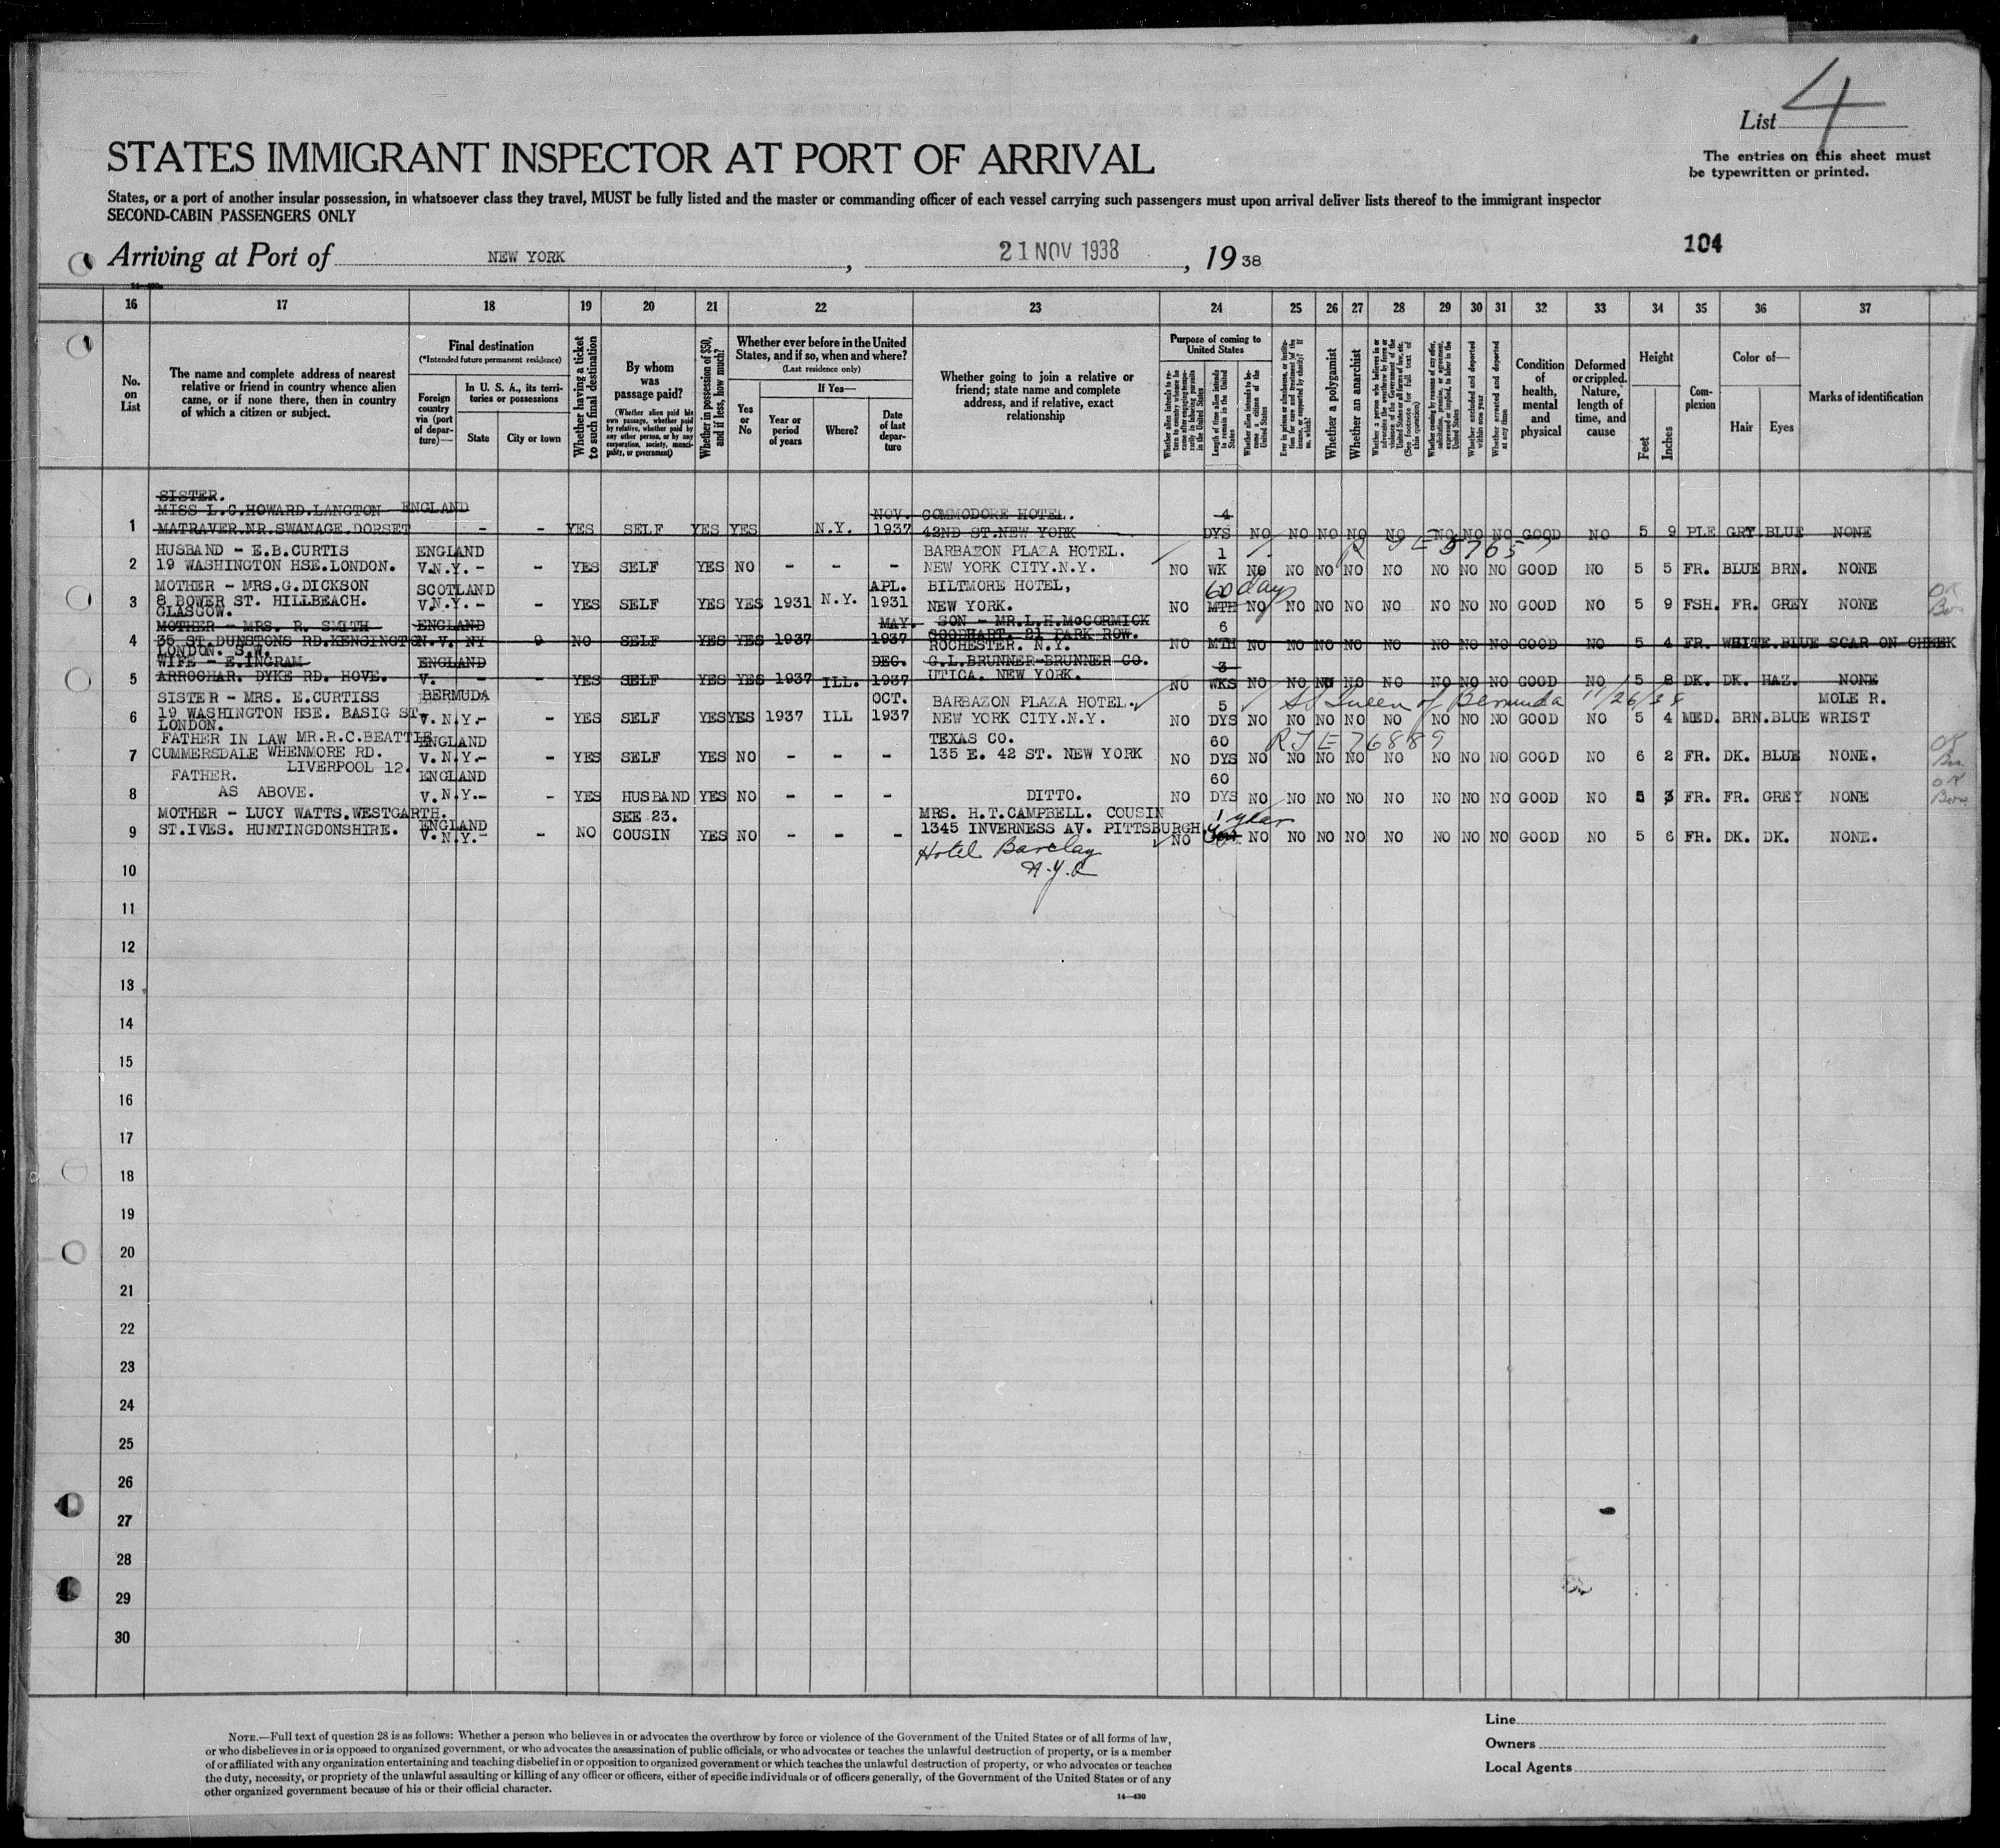 List 4
The entries on this sheet must
be typewritten or printed.
STATES IMMIGRANT INSPECTOR AT PORT OF ARRIVAL
States, or a port of another insular possession, in whatsoever class they travel, MUST be fully listed and the master or commanding officer of each vessel carrying such passengers must upon arrival deliver lists thereof to the immigrant inspector
SECOND-CABIN PASSENGERS ONLY
104
Arriving at Port of NEW YORK, 21 NOV 1938, 19 38
16 17 18 19 20 21 22 23 24 25 26 27 28 29 30 31 32 33 34 35 36 37
No. on List
The name and complete address of nearest
relative or friend in country whence alien
came, or if none there, then in country
of which a citizen or subject.
Final destination
(*Intended future permanent residence)
Foreign country via (port of departure)—
In U. S. A., its territories or possessions
State
City or town
Whether having a ticket to such final destination
By whom was passage paid?
(Whether alien paid his own passage, whether paid by relative, whether paid by any other person, or by any corporation, society, municipality, or government)
Whether in possession of $50, and if less, how much?
Whether ever before in the United States, and if so, when and where?
(Last residence only)
Yes or No
If Yes—
Year or period of years
Where?
Date of last departure
Whether going to join a relative or
friend; state name and complete
address, and if relative, exact
relationship
Purpose of coming to United States
Length of time alien intends to remain in the United States
Whether alien intends to become a citizen of the United States
Whether a polygamist
Whether an anarchist
(See footnote for full text of this question)
Whether excluded and deported within one year
Whether arrested and deported at any time
Condition of health, mental and physical
Deformed or crippled. Nature, length of time, and cause
Height
Feet
Inches
Complexion
Color of—
Hair
Eyes
Marks of identification
SISTER.
MISS L.C.HOWARD.LANGTON ENGLAND NOV. COMMODORE HOTEL. 4
1 MATRAVER.NR.SWANAGE.DORSET - - YES SELF YES YES N.Y. 1937 42ND ST.NEW YORK DYS NO NO NO NO NO NO NO NO GOOD NO 5 9 PLE GRY.BLUE NONE
HUSBAND - E.B.CURTIS ENGLAND BARBAZON PLAZA HOTEL. 1
2 19 WASHINGTON HSE.LONDON. V.N.Y.- - YES SELF YES NO - - - NEW YORK CITY.N.Y. NO WK NO NO NO NO NO NO NO NO GOOD NO 5 5 FR. BLUE BRN. NONE
MOTHER - MRS.G.DICKSON SCOTLAND APL. BILTMORE HOTEL, 60 days
3 8 BOWER ST. HILLBEACH. V.N.Y.- - YES SELF YES YES 1931 N.Y. 1931 NEW YORK. NO MTH NO NO NO NO NO NO NO NO GOOD NO 5 9 FSH. FR. GREY NONE
GLASGOW.
MOTHER - MRS. R. SMITH ENGLAND MAY. SON - MR.L.H.McCORMICK 6
4 35 ST.DUNSTONS RD.KENSINGTON. V. NY 9 NO SELF YES YES 1937 1937 GOODHART. 21 PARK ROW. NO MTH NO NO NO NO NO NO NO NO GOOD NO 5 4 FR. WHITE.BLUE SCAR ON CHEEK
LONDON. S.W. ROCHESTER. N.Y.
WIFE - E.INGRAM ENGLAND DEC. G.L.BRUNNER-BRUNNER CO. 3
5 ARROCHAR. DYKE RD. HOVE. V. - - YES SELF YES YES 1937 ILL. 1937 UTICA. NEW YORK. NO WKS NO NO NO NO NO NO NO NO GOOD NO 5 8 DK. DK. HAZ. NONE
SISTER - MRS. E.CURTISS BERMUDA OCT. BARBAZON PLAZA HOTEL. 5 SS Queen of Bermuda 11/26/38 MOLE R.
6 19 WASHINGTON HSE. BASIG ST. V.N.Y.- - YES SELF YES YES 1937 ILL 1937 NEW YORK CITY.N.Y. NO DYS NO NO NO NO NO NO NO NO GOOD NO 5 4 MED. BRN.BLUE WRIST
LONDON.
FATHER IN LAW MR.R.C.BEATTIE ENGLAND TEXAS CO. 60
7 CUMMERSDALE WHENMORE RD. V.N.Y.- - YES SELF YES NO - - - 135 E. 42 ST. NEW YORK NO DYS NO NO NO NO NO NO NO NO GOOD NO 6 2 FR. DK. BLUE NONE.
LIVERPOOL 12.
FATHER. ENGLAND 60
8 AS ABOVE. V.N.Y.- - YES HUSBAND YES NO - - - DITTO. NO DYS NO NO NO NO NO NO NO NO GOOD NO 5 3 FR. FR. GREY NONE
MOTHER - LUCY WATTS.WESTGARTH. SEE 23. MRS. H.T.CAMPBELL. COUSIN 1 year
9 ST.IVES. HUNTINGDONSHIRE. ENGLAND V.N.Y.- - NO COUSIN YES NO - - - 1345 INVERNESS AV. PITTSBURGH NO NO NO NO NO NO NO NO NO GOOD NO 5 6 FR. DK. DK. NONE.
Hotel Barclay
N.Y.C
10
11
12
13
14
15
16
17
18
19
20
21
22
23
24
25
26
27
28
29
30
NOTE.—Full text of question 28 is as follows: Whether a person who believes in or advocates the overthrow by force or violence of the Government of the United States or of all forms of law,
or who disbelieves in or is opposed to organized government, or who advocates the assassination of public officials, or who advocates or teaches the unlawful destruction of property, or is a member
of or affiliated with any organization entertaining and teaching disbelief in or opposition to organized government or which teaches the unlawful destruction of property, or who advocates or teaches
the duty, necessity, or propriety of the unlawful assaulting or killing of any officer or officers, either of specific individuals or of officers generally, of the Government of the United States or of any
other organized government because of his or their official character.
14—430
Line
Owners
Local Agents